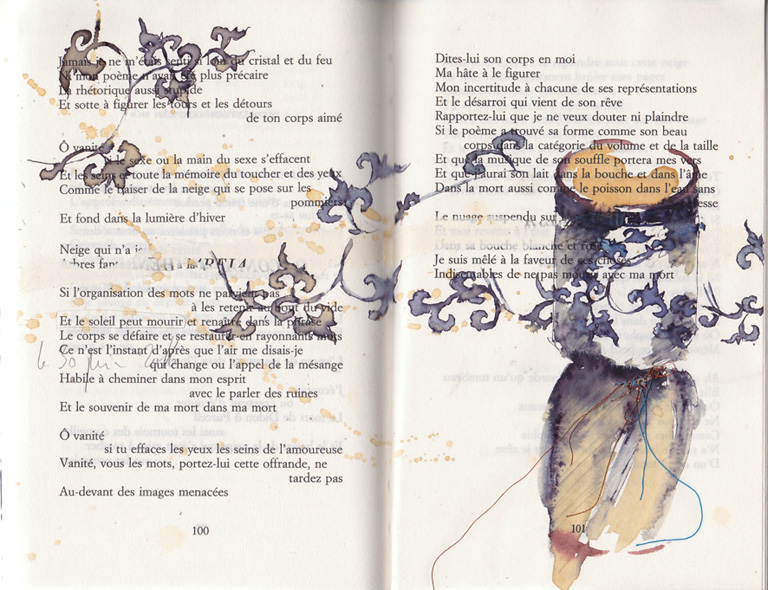 Jamais je ne m'étais senti si loin du cristal et du feu
Ni mon poème n'avait été plus précaire
La rhétorique aussi stupide
Et sotte à figurer les tours et les détours
de ton corps aimé
Ô vanité
si le sexe ou la main du sexe s'effacent
Et les seins et toute la mémoire du toucher et des yeux
Comme le baiser de la neige qui se pose sur les
pommiers
Et fond dans la lumière d'hiver
Neige qui n'a
Arbres
Si l'organisation des mots ne parvient pas
à les retenir au bout du vide
Et le soleil peut mourir et renaître dans la phrase
Le corps se défaire et se restaurer en rayonnants mots
Ce n'est l'instant d'après que l'air me disais-je
qui change ou l'appel de la mésange
Habile à cheminer dans mon esprit
avec le parler des ruines
Et le souvenir de ma mort dans ma mort
Ô vanité
si tu effaces les yeux les seins de l'amoureuse
Vanité, vous les mots, portez-lui cette offrande, ne
tardez pas
Au-devant des images menacées
100
Dites-lui son corps en moi
Ma hâte à le figurer
Mon incertitude à chacune de ses représentations
Et le désarroi qui vient de son rêve
Rapportez-lui que je ne veux douter ni plaindre
Si le poème a trouvé sa forme comme son beau
corps dans la catégorie du volume et de la taille
Et que la musique de son souffle portera mes vers
Et que j'aurai son lait dans la bouche et dans l'âme
Dans la mort aussi comme le poisson dans l'eau sans
Le nuage suspendu sur
Dans sa bouche blanche et rose
Je suis mêlé à la faveur de ses choses
Indispensables de ne pas mourir avec ma mort
101